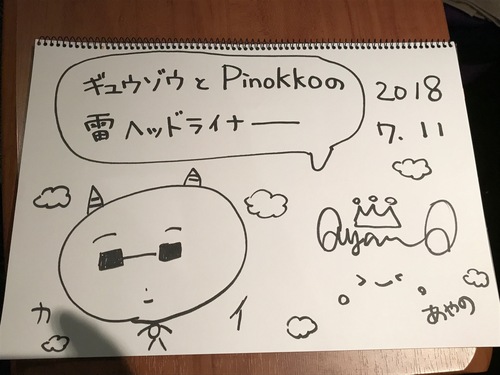 ギュウゾウと Pinokkoの
雷 ヘッドライナー
2018
7.11
カ イ
あやの